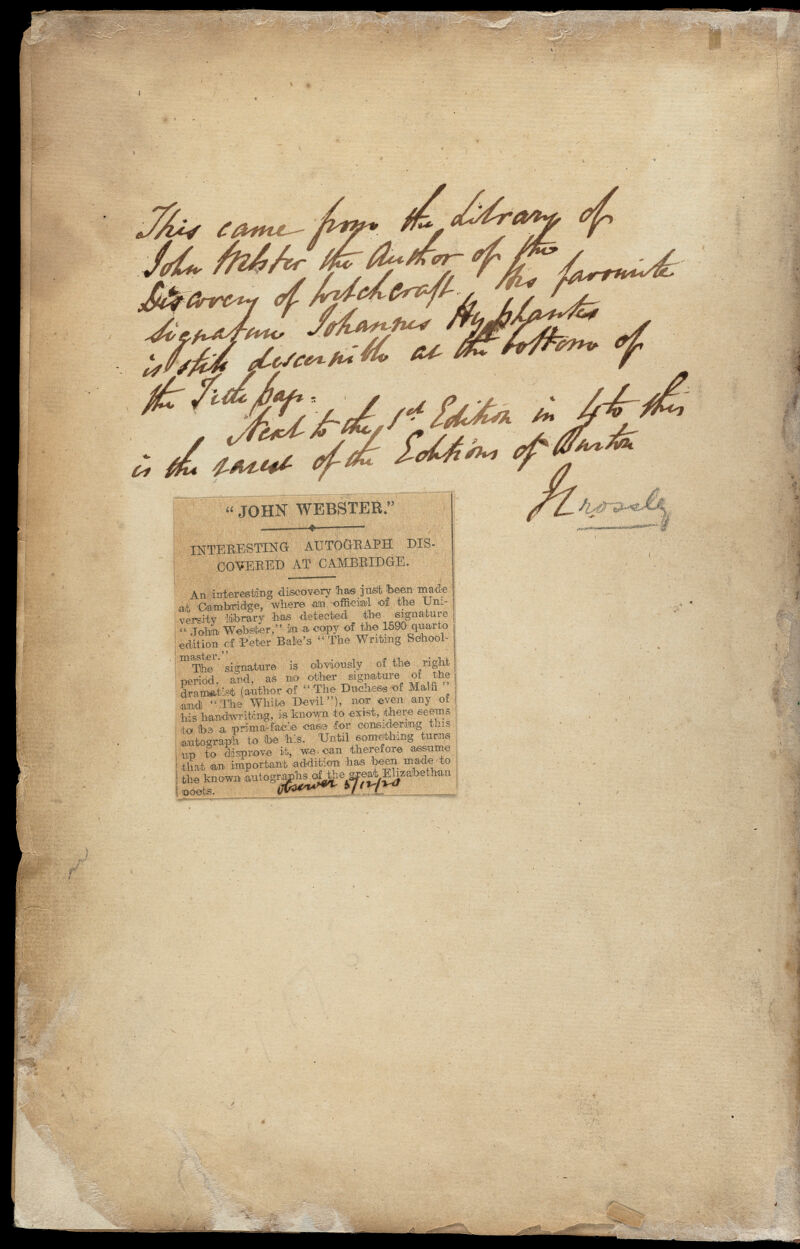 This came from the Library of
John Webster the Author of the
Discovery of Witchcraft. His favourite
signature Johannes Hyphantes
is still discernible at the bottom of
the Title page.
Next to the 1st Edition in 4to this
is the rarest of the Editions of Burton
JCrossley
"JOHN WEBSTER."
INTERESTING AUTOGRAPH DIS-
COVERED AT CAMBRIDGE.
An interesting discovery has just been made
at Cambridge, where an official of the Uni-
versity library has detected the signature
"John Webster," in a copy of the 1590 quarto
edition of Peter Bale's "The Writing School-
master."
The signature is obviously of the right
period, and, as no other signature of the
dramatist (author of "The Duchess of Malfi"
and "The White Devil"), nor even any of
his handwriting, is known to exist, there seems
to be a prima-facie case for considering this
autograph to be his. Until something turns
up to disprove it, we can therefore assume
that an important addition has been made to
the known autographs of the great Elizabethan
poets.
Observer 5/12/20